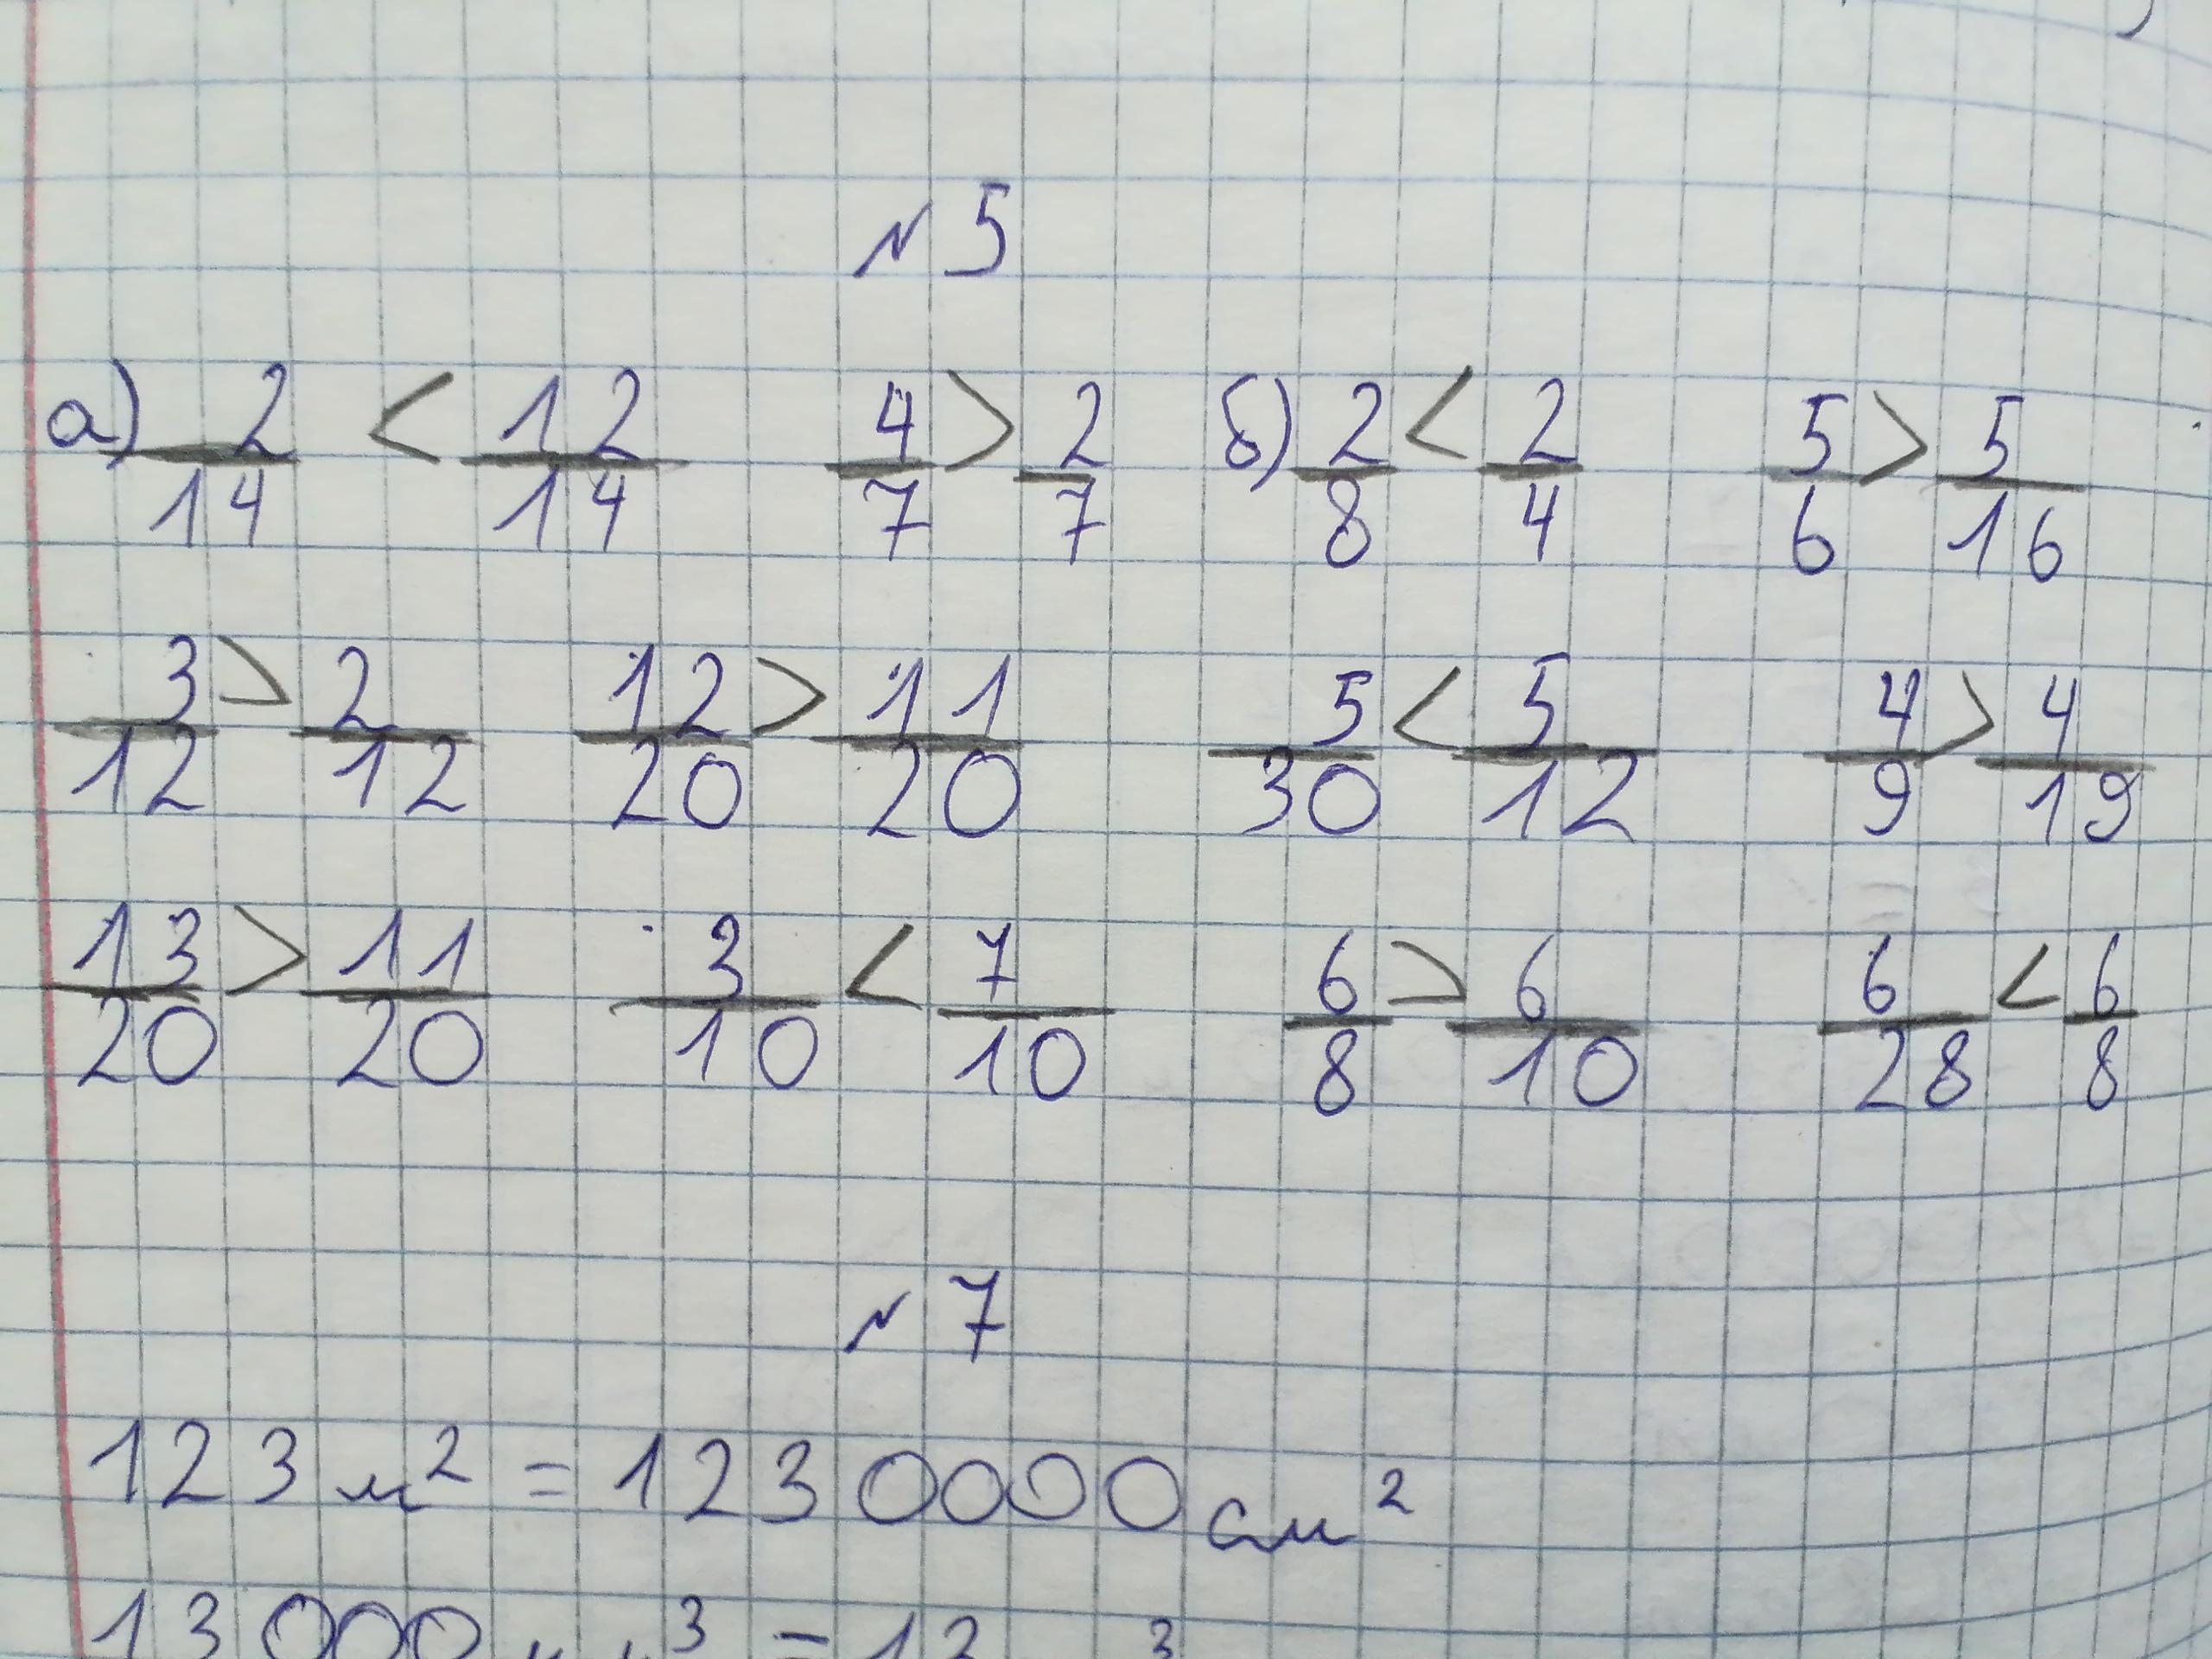 №5
а) 2/14 < 12/14 4/7 > 2/7 б) 2/8 < 2/4 5/6 > 5/16
3/12 > 2/12 12/20 > 11/20 5/30 < 5/12 4/9 > 4/19
13/20 > 11/20 3/10 < 7/10 6/8 > 6/10 6/28 < 6/8
№7
123 м² = 1230000 см²
13000 ³ = 13 ³